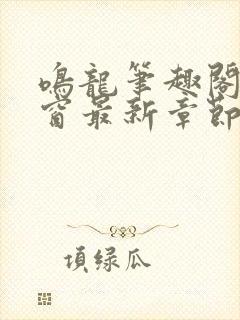 鳴龍筆趣閣
窗最新章節
頂绿瓜